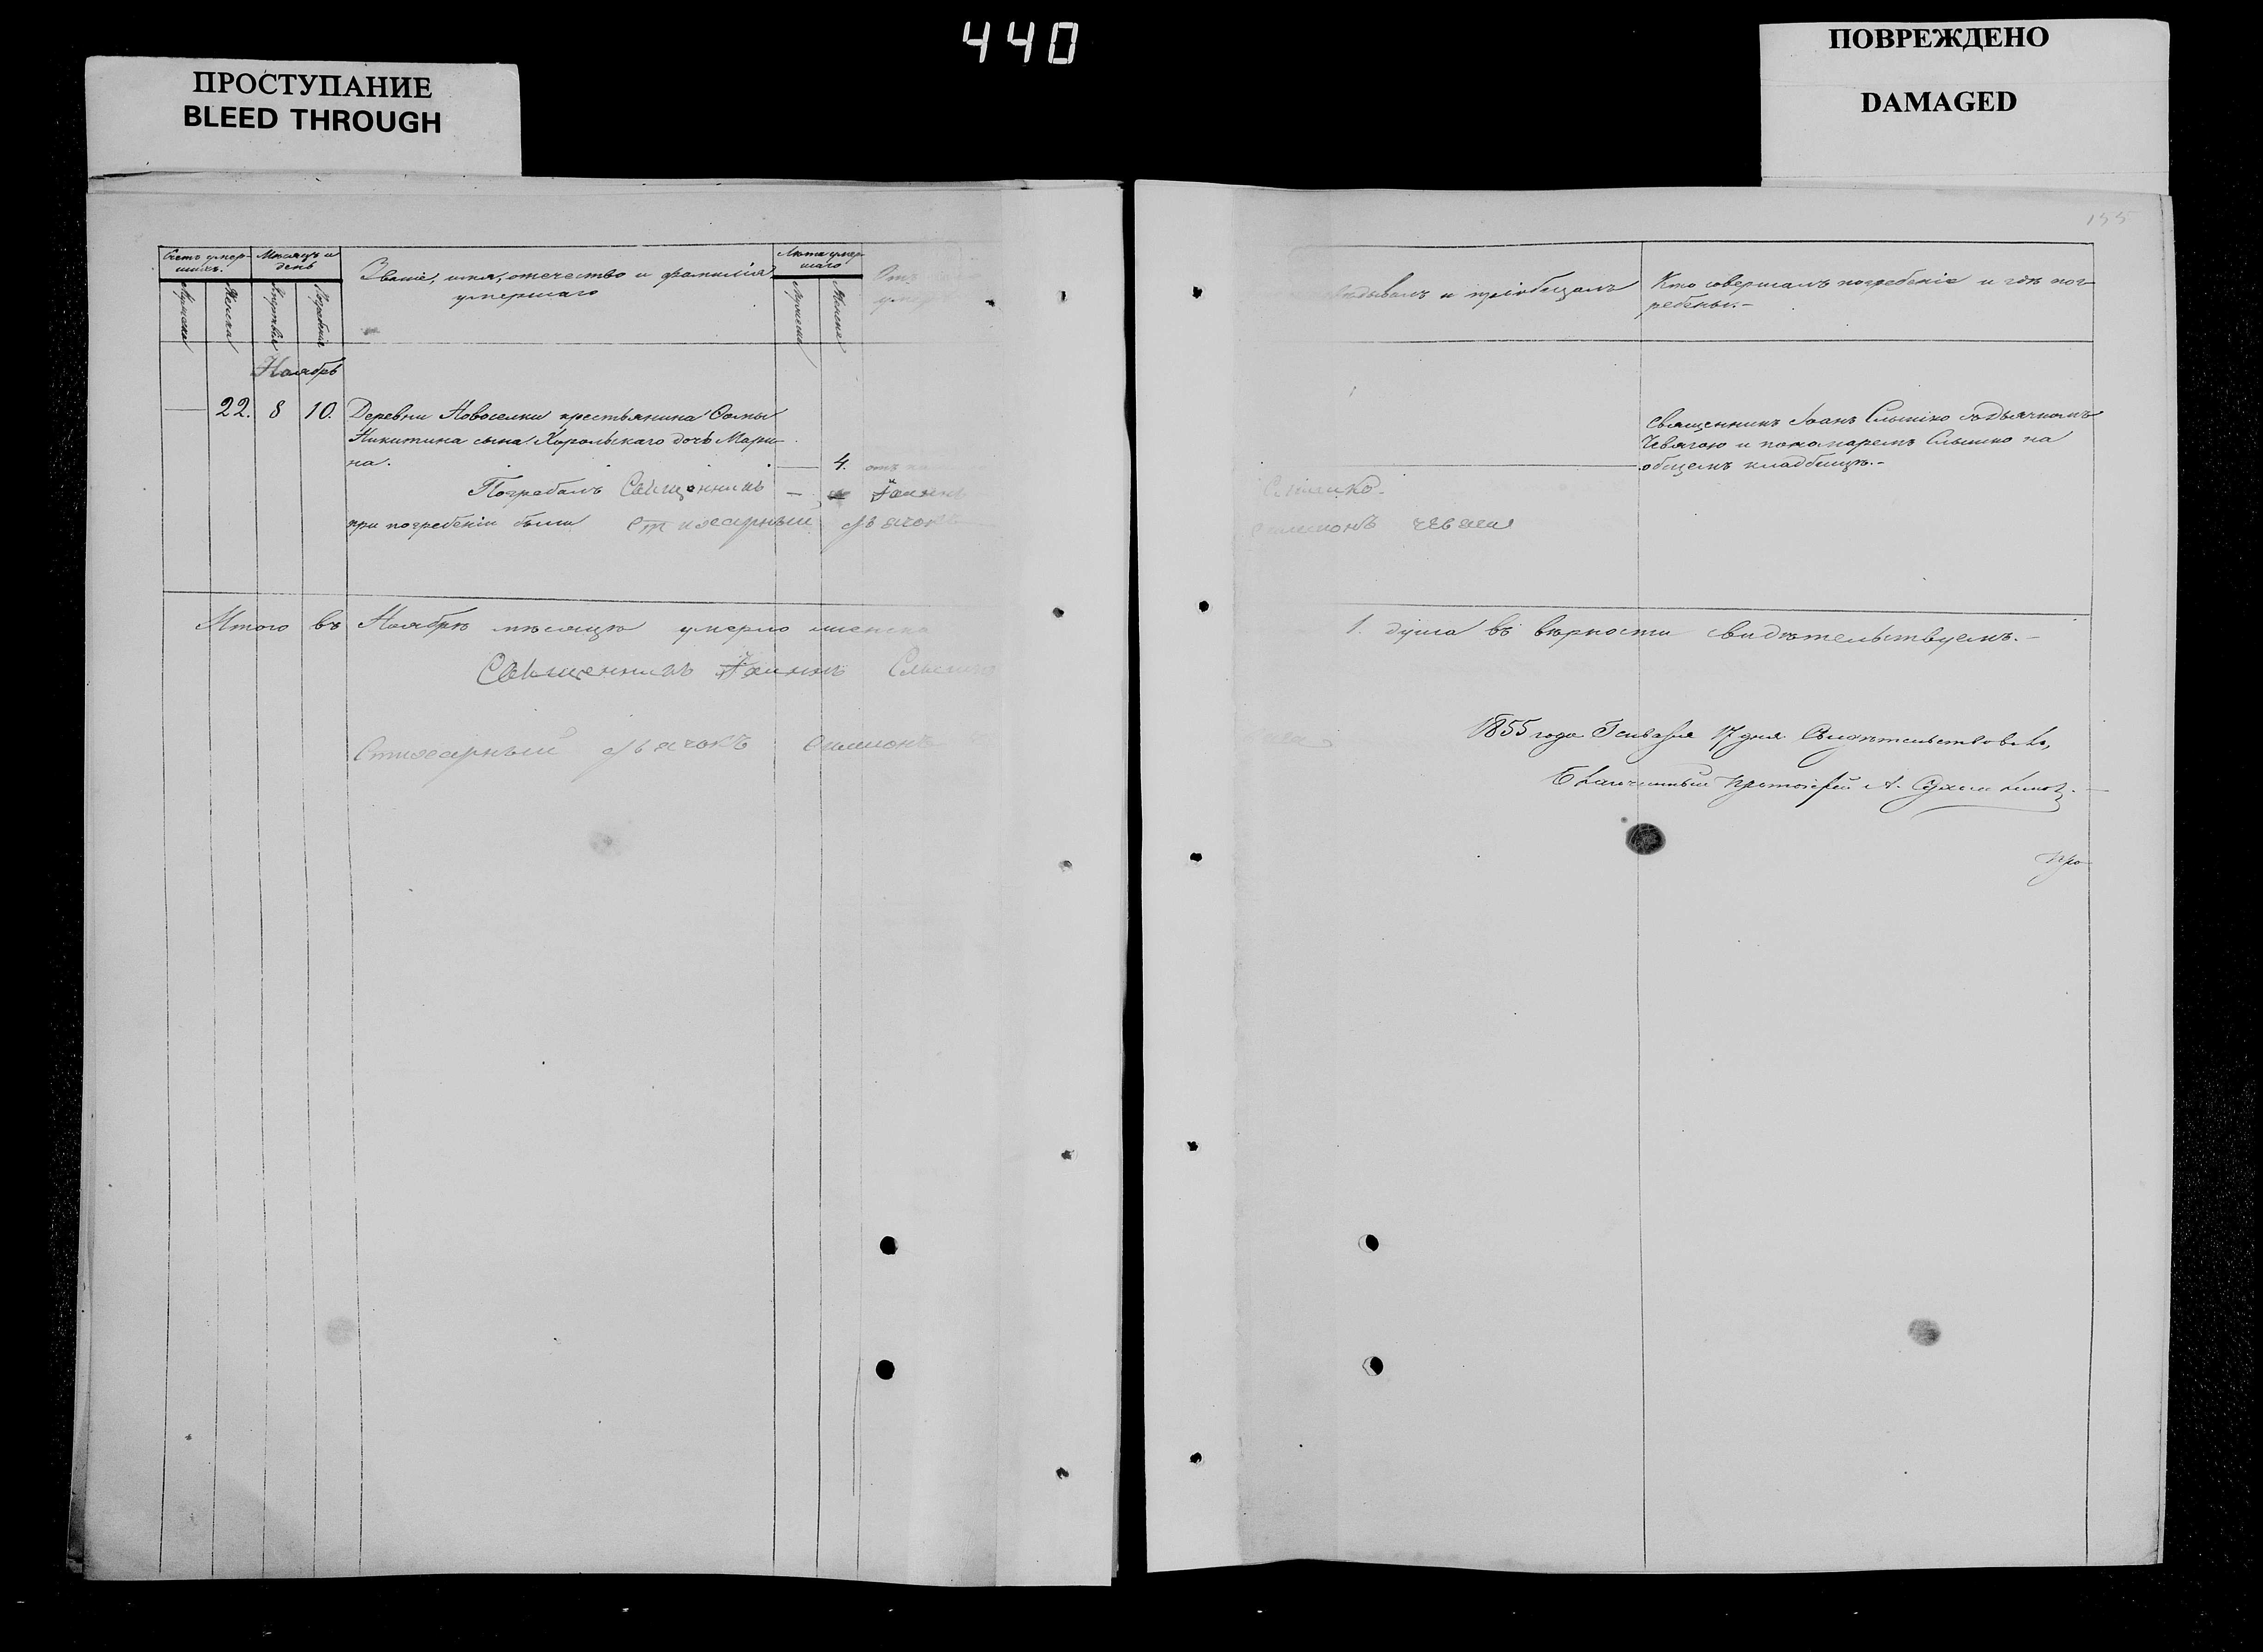 440
ПРОСТУПАНИЕ
BLEED THROUGH
ПОВРЕЖДЕНО
DAMAGED
155
Счетъ умер-
шихъ.
Мѣсяцъ и
день
Званіе, имя, отечество и фамилія
умершаго
Лѣта умер-
шаго
Отъ
умер
Мужеска
Женска
Погребенія
Мужеска
Женска
Ноябрь
22. 8 10. Деревни Новоселки крестьянина Ѳомы
Никитина сына Хорольскаго дочь Мари-
на. 4. отъ
Погребалъ Священникъ Іоаннъ
при погребеніи были Стихарный дьячокъ
Итого въ Ноябрѣ мѣсяцѣ умерло женска
Священникъ Іоаннъ Слышко
Стихарный дьячокъ Симионъ
ѣдывалъ и пріобщалъ
Кто совершалъ погребеніе и гдѣ пог-
ребены.-
Священникъ Іоанъ Слышко съ дьячкомъ
Чевягою и пономаремъ Слышко на
общемъ кладбищѣ.-
Слышко.
Симионъ Чевяга
1. душа въ вѣрности свидѣтельствуемъ.-
1855 года Генваря 17 дня Свидѣтельствовалъ,
Благочинный Протоіерей А.
Про